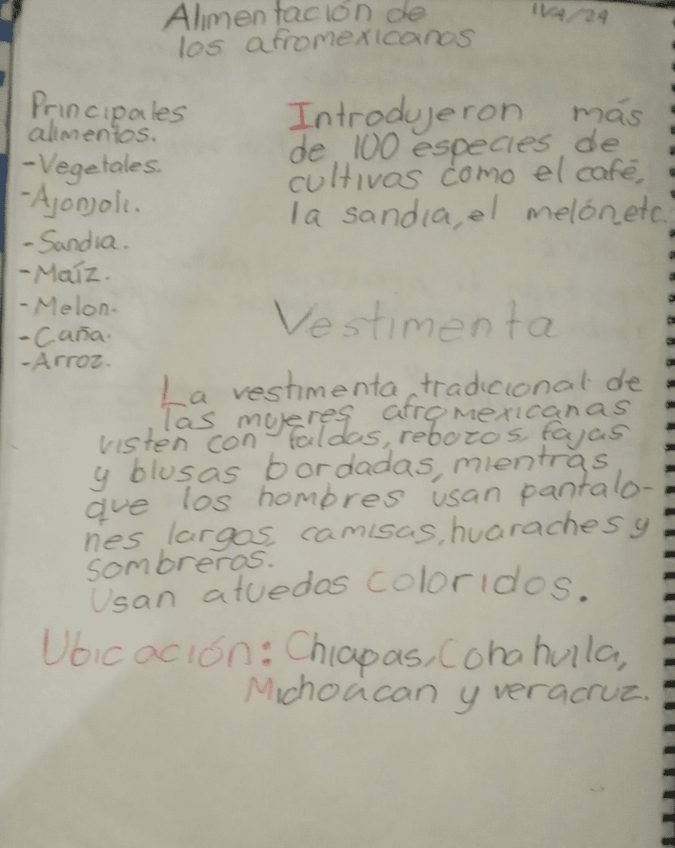 Alimentación de
los afromexicanos
Principales
alimentos.
-Vegetales.
-Ajonjolí.
-Sandia.
-Maíz.
-Melon.
-Caña.
-Arroz.
Introdujeron más
de 100 especies de
cultivas como el café,
la sandia, el melón, etc.
Vestimenta
La vestimenta tradicional de
las mujeres afromexicanas
visten con faldas, rebozos, fajas
y blusas bordadas, mientras
que los hombres usan pantalo-
nes largos, camisas, huaraches y
sombreros.
Usan atuedos coloridos.
Ubicación: Chiapas, Cohahuila,
Michoacan y veracruz.